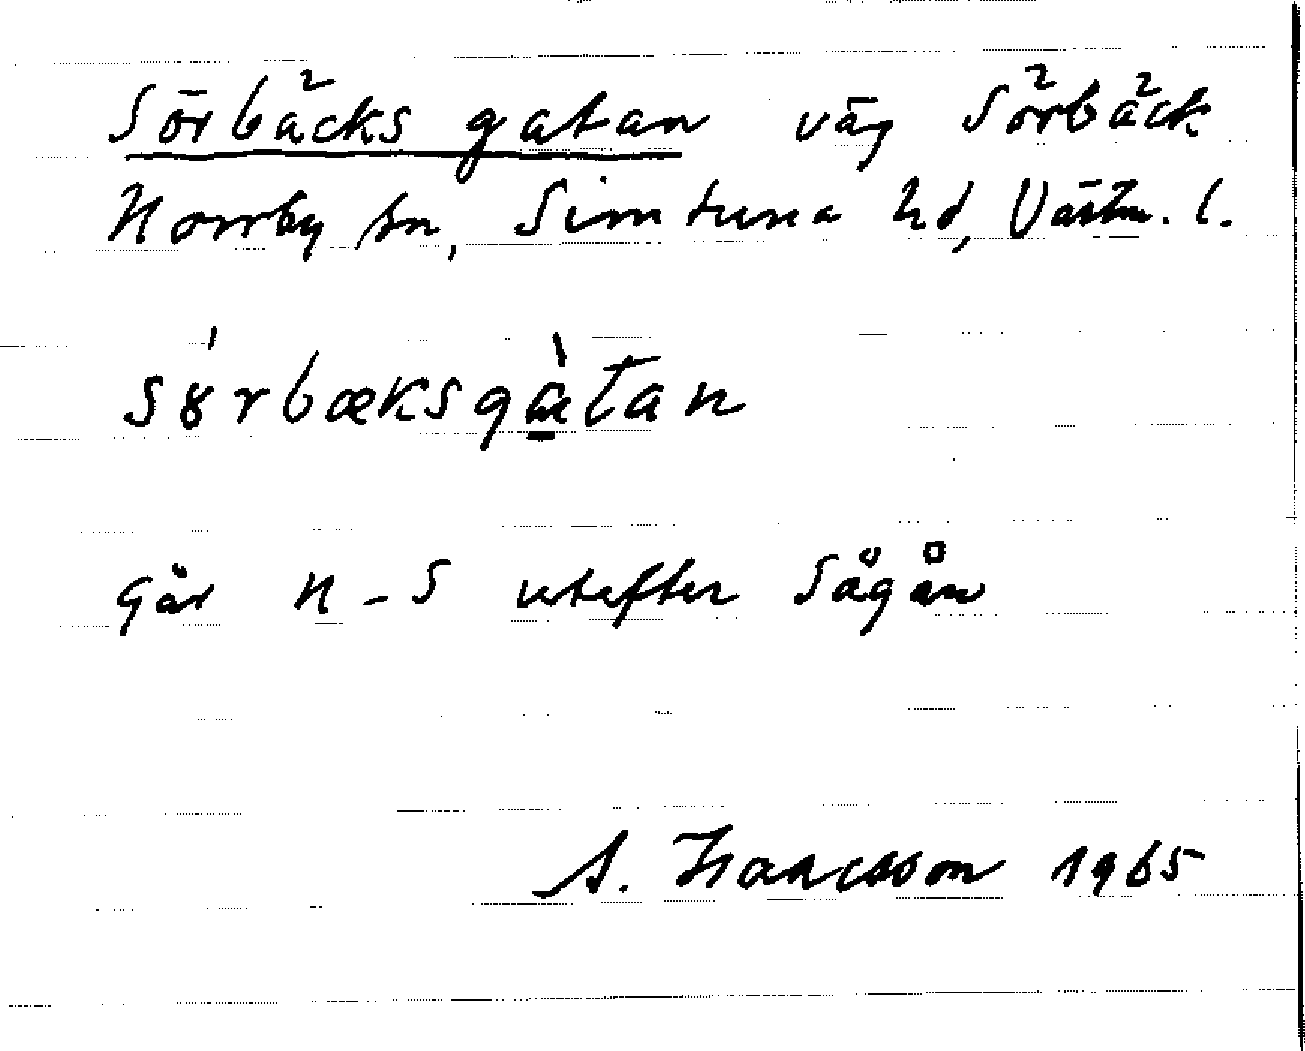 Sörbäcks gatan väg Sörbäck
Norrby sn, Simtuna hd, Västm. l.
sörbæksgàtan
Går N - S utefter Sågån
A. Isaacsson 1965